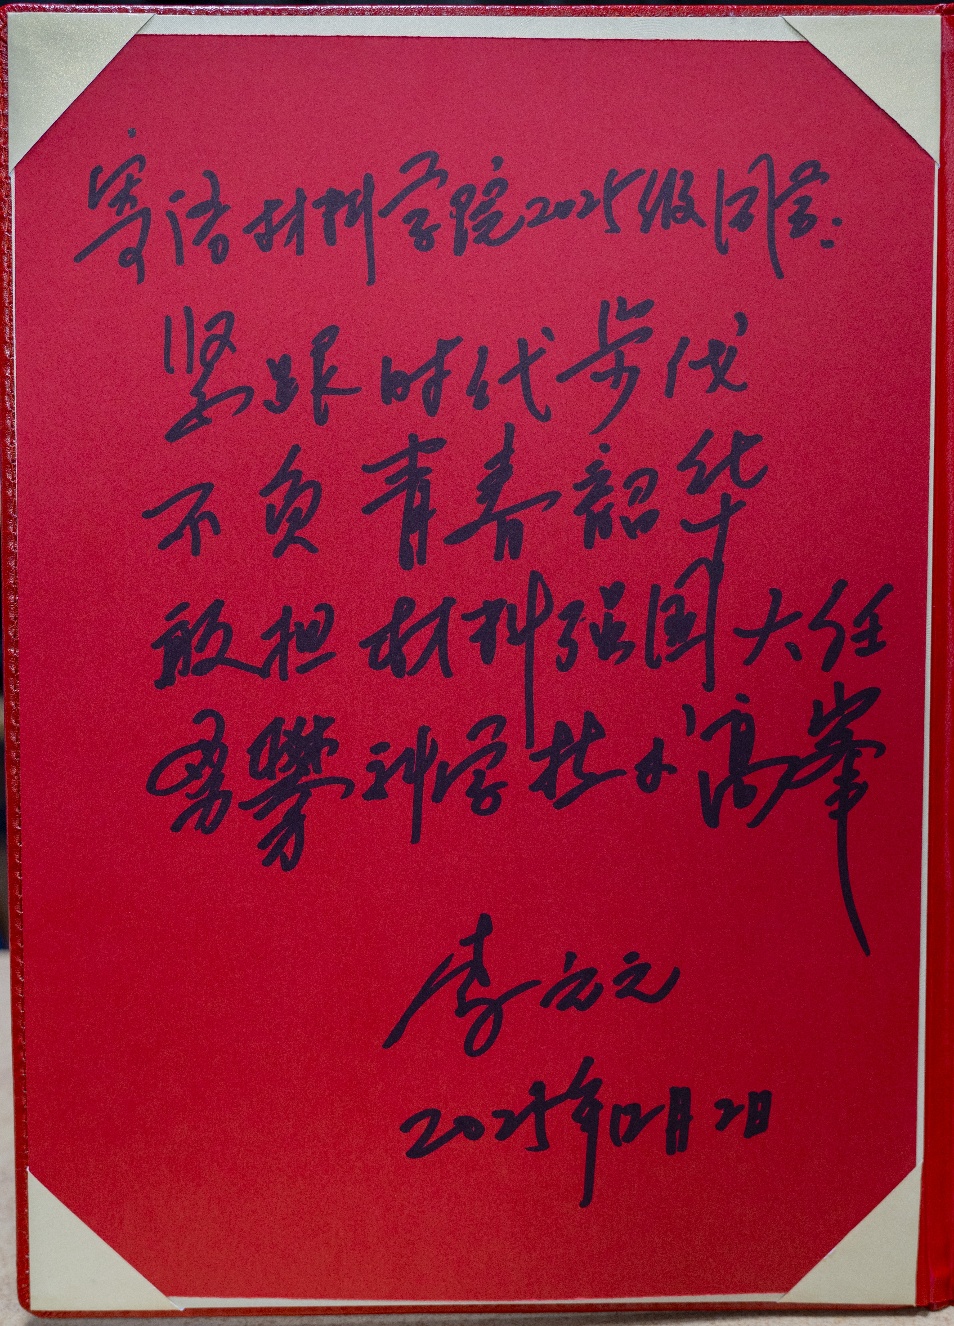 寄语材料学院2025级同学：
紧跟时代步伐
不负青春韶华
敢担材料强国大任
勇攀科学技术高峯
李元元
2025年12月2日